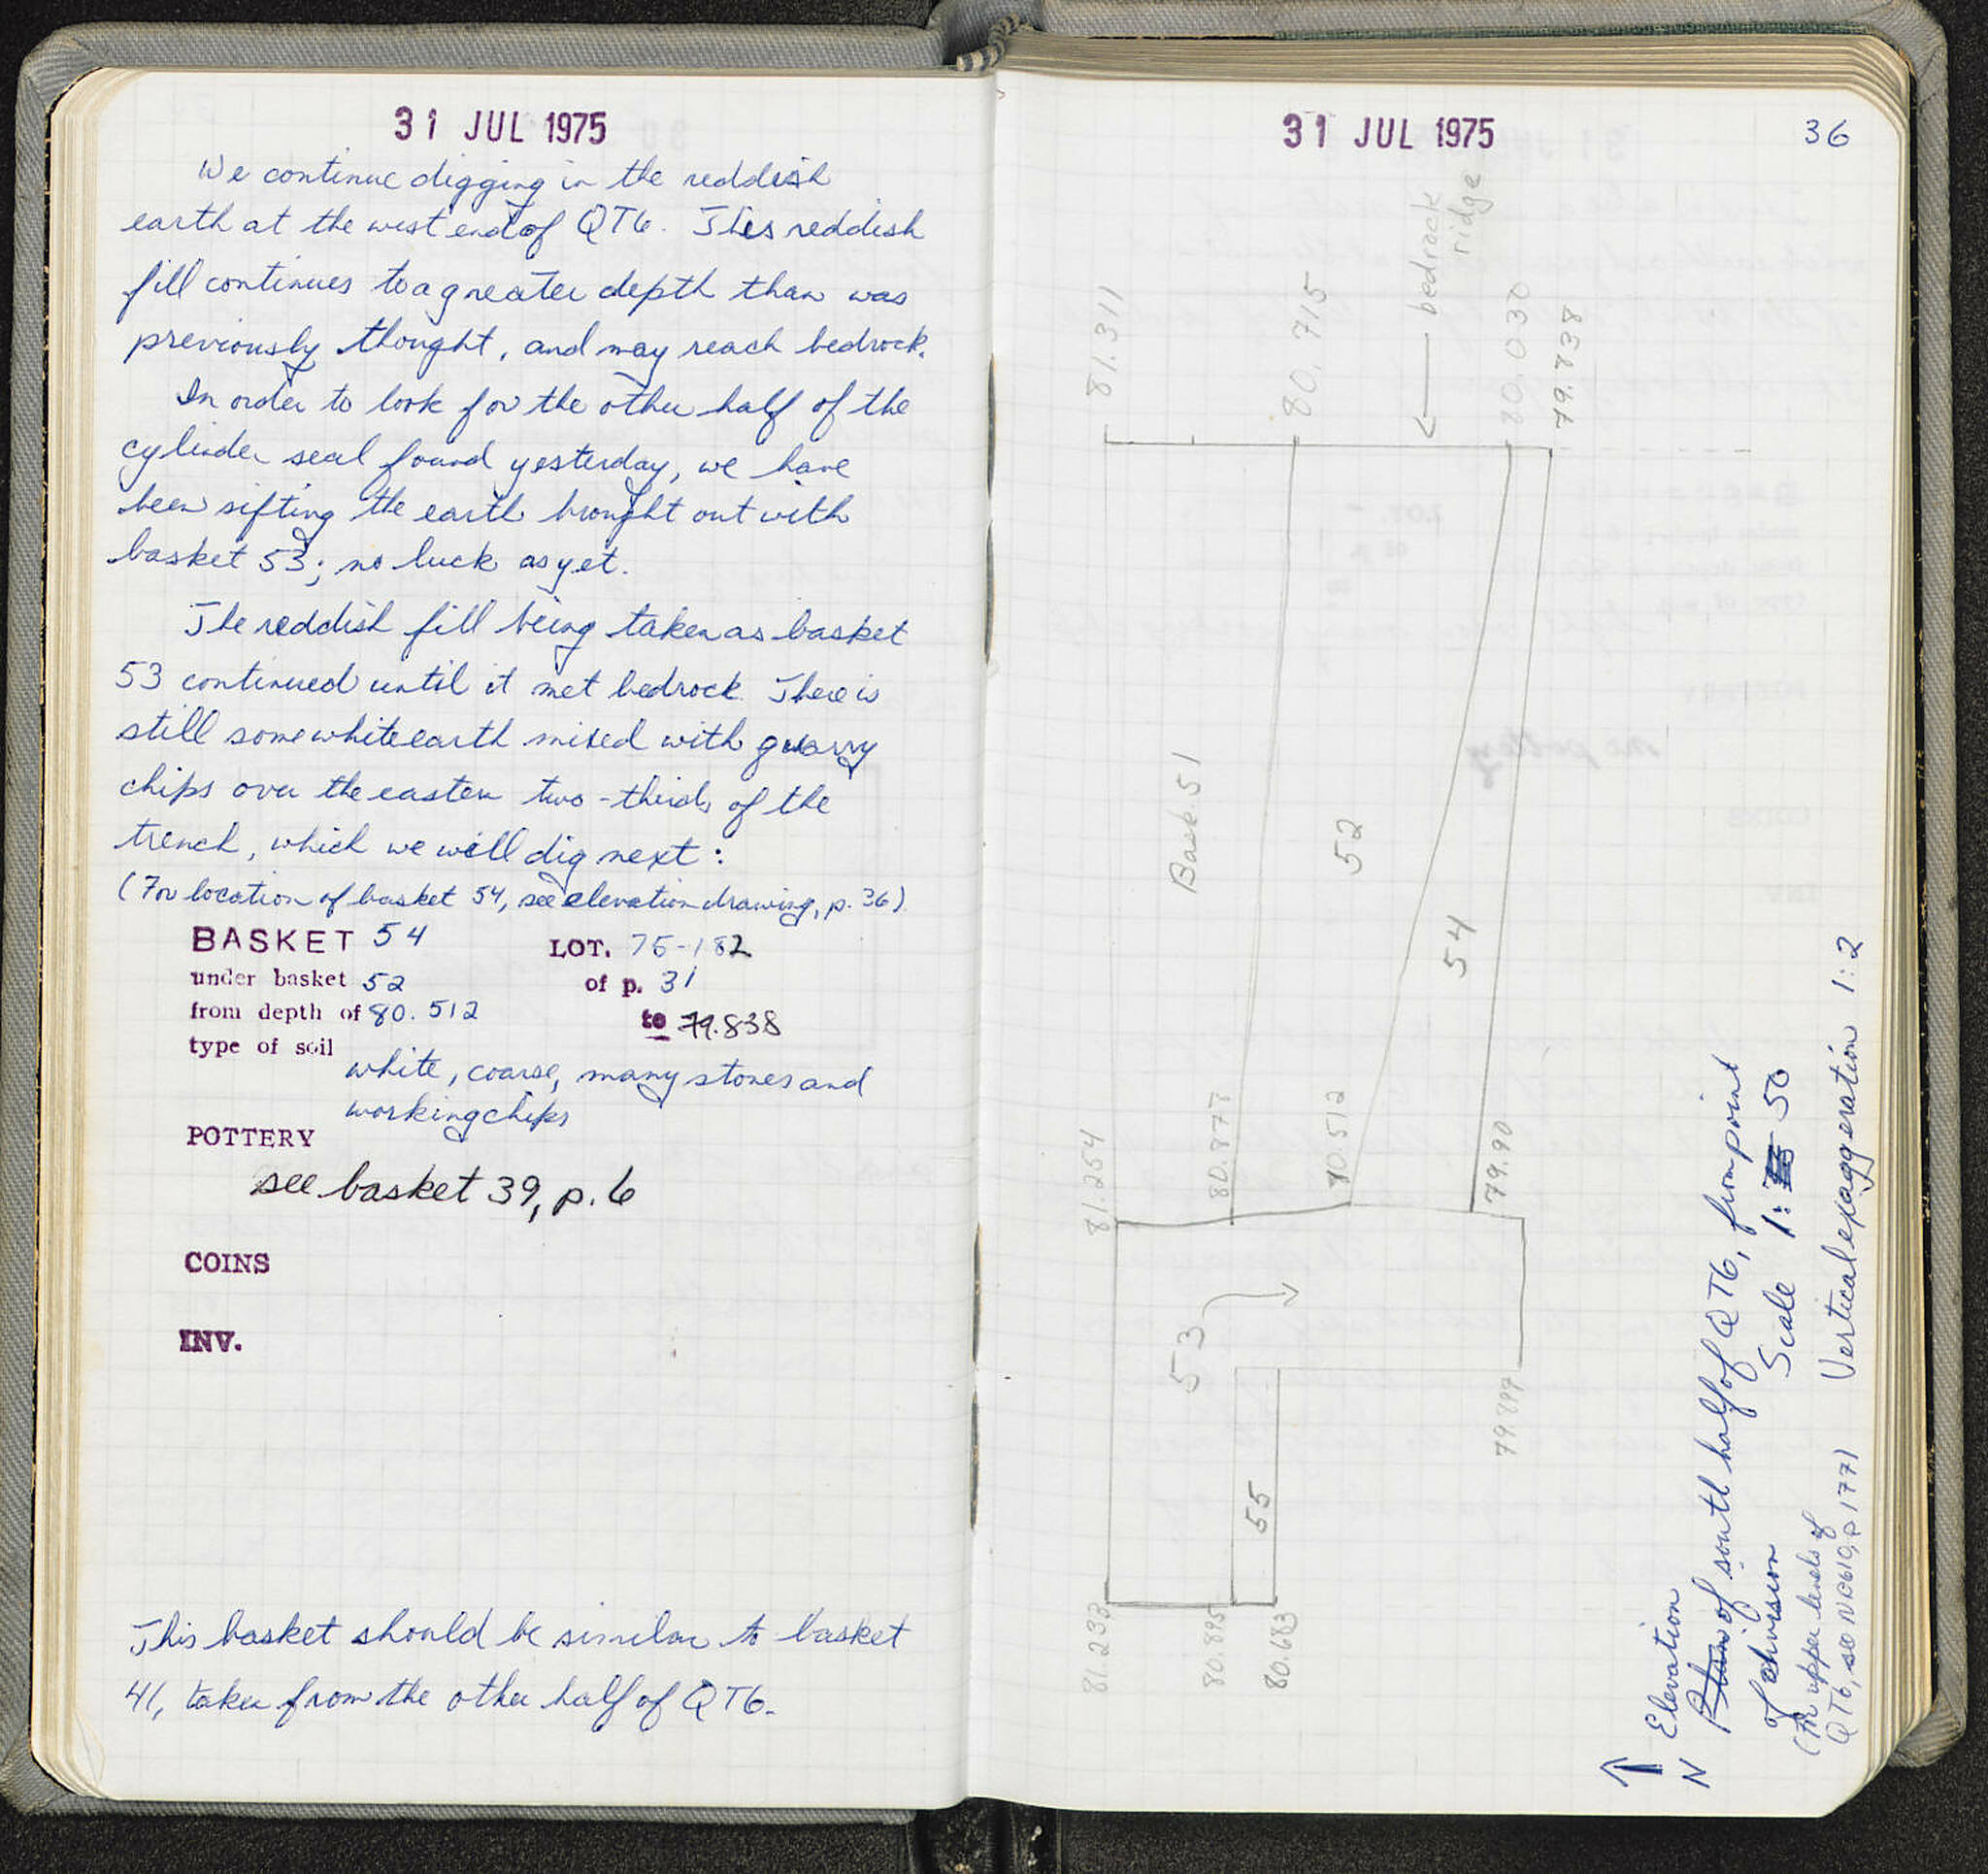 31 JUL 1975
We continue digging in the reddish
earth at the west end of QT6. This reddish
fill continues to a greater depth than was
previously thought, and may reach bedrock.
In order to look for the other half of the
cylinder seal found yesterday, we have
been sifting the earth brought out with
basket 53; no luck as yet.
The reddish fill being taken as basket
53 continued until it met bedrock. There is
still some white earth mixed with quarry
chips over the eastern two-thirds of the
trench, which we will dig next:
(For location of basket 54, see elevation drawing, p. 36)
BASKET 54 LOT. 75-182
under basket 52 of p. 31
from depth of 80.512 to 79.838
type of soil
white, coarse, many stones and
working chips
POTTERY
see basket 39, p. 6
COINS
INV.
This basket should be similar to basket
41, taken from the other half of QT6.
31 JUL 1975 36
bedrock
ridge
81.311
80.715
80.030
79.838
Bask. 51
52
54
81.254
80.877
80.512
79.90
53
55
79.897
81.233
80.895
80.683
N
Elevation
Plan of south half of QT6, from point
of division Scale 1: 50
(for upper levels of
QT6, see NB610, p. 177) Vertical exaggeration 1:2